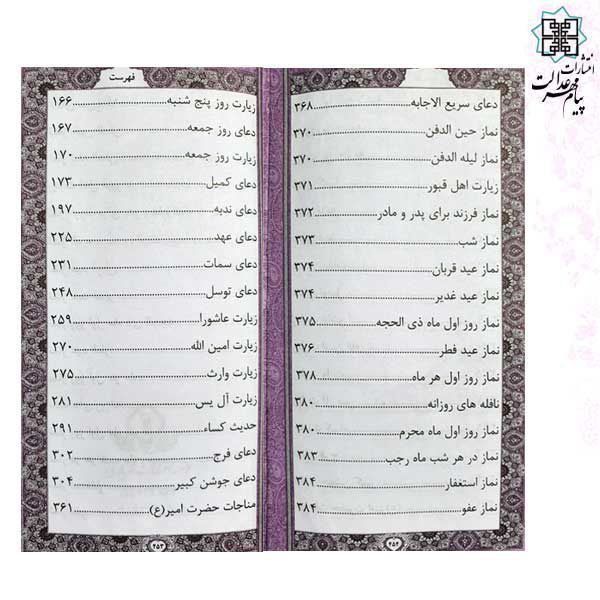 انتشارات
پیام مهر عدالت
دعای سریع الاجابه ۳۶۸
نماز حین الدفن ۳۷۰
نماز لیله الدفن ۳۷۰
زیارت اهل قبور ۳۷۱
نماز فرزند برای پدر و مادر ۳۷۲
نماز شب ۳۷۳
نماز عید قربان ۳۷۴
نماز عید غدیر ۳۷۴
نماز روز اول ماه ذی الحجه ۳۷۵
نماز عید فطر ۳۷۶
نماز روز اول هر ماه ۳۷۸
نافله های روزانه ۳۸۰
نماز روز اول ماه محرم ۳۸۰
نماز در هر شب ماه رجب ۳۸۳
نماز استغفار ۳۸۴
نماز عفو ۳۸۴
۴۵۴
فهرست
زیارت روز پنج شنبه ۱۶۶
دعای روز جمعه ۱۶۷
زیارت روز جمعه ۱۷۰
دعای کمیل ۱۷۳
دعای ندبه ۱۹۷
دعای عهد ۲۲۵
دعای سمات ۲۳۱
دعای توسل ۲۴۸
زیارت عاشورا ۲۵۹
زیارت امین الله ۲۷۰
زیارت وارث ۲۷۵
زیارت آل یس ۲۸۱
حدیث کساء ۲۹۱
دعای فرج ۳۰۲
دعای جوشن کبیر ۳۰۴
مناجات حضرت امیر(ع) ۳۶۱
۴۵۳